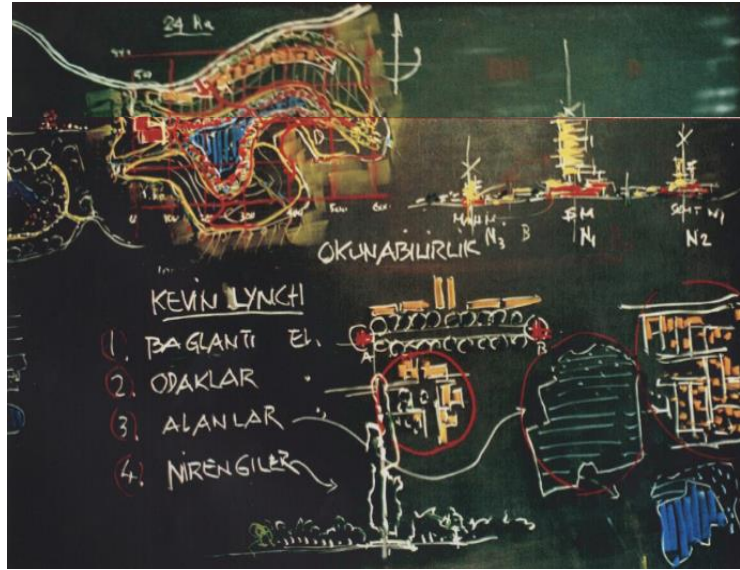 24 ha
N3
B
N1
N2
OKUNABILIRLIK
KEVIN LYNCH
1. BAĞLANTI EL.
2. ODAKLAR
3. ALANLAR
4. NIRENGILER
A
B